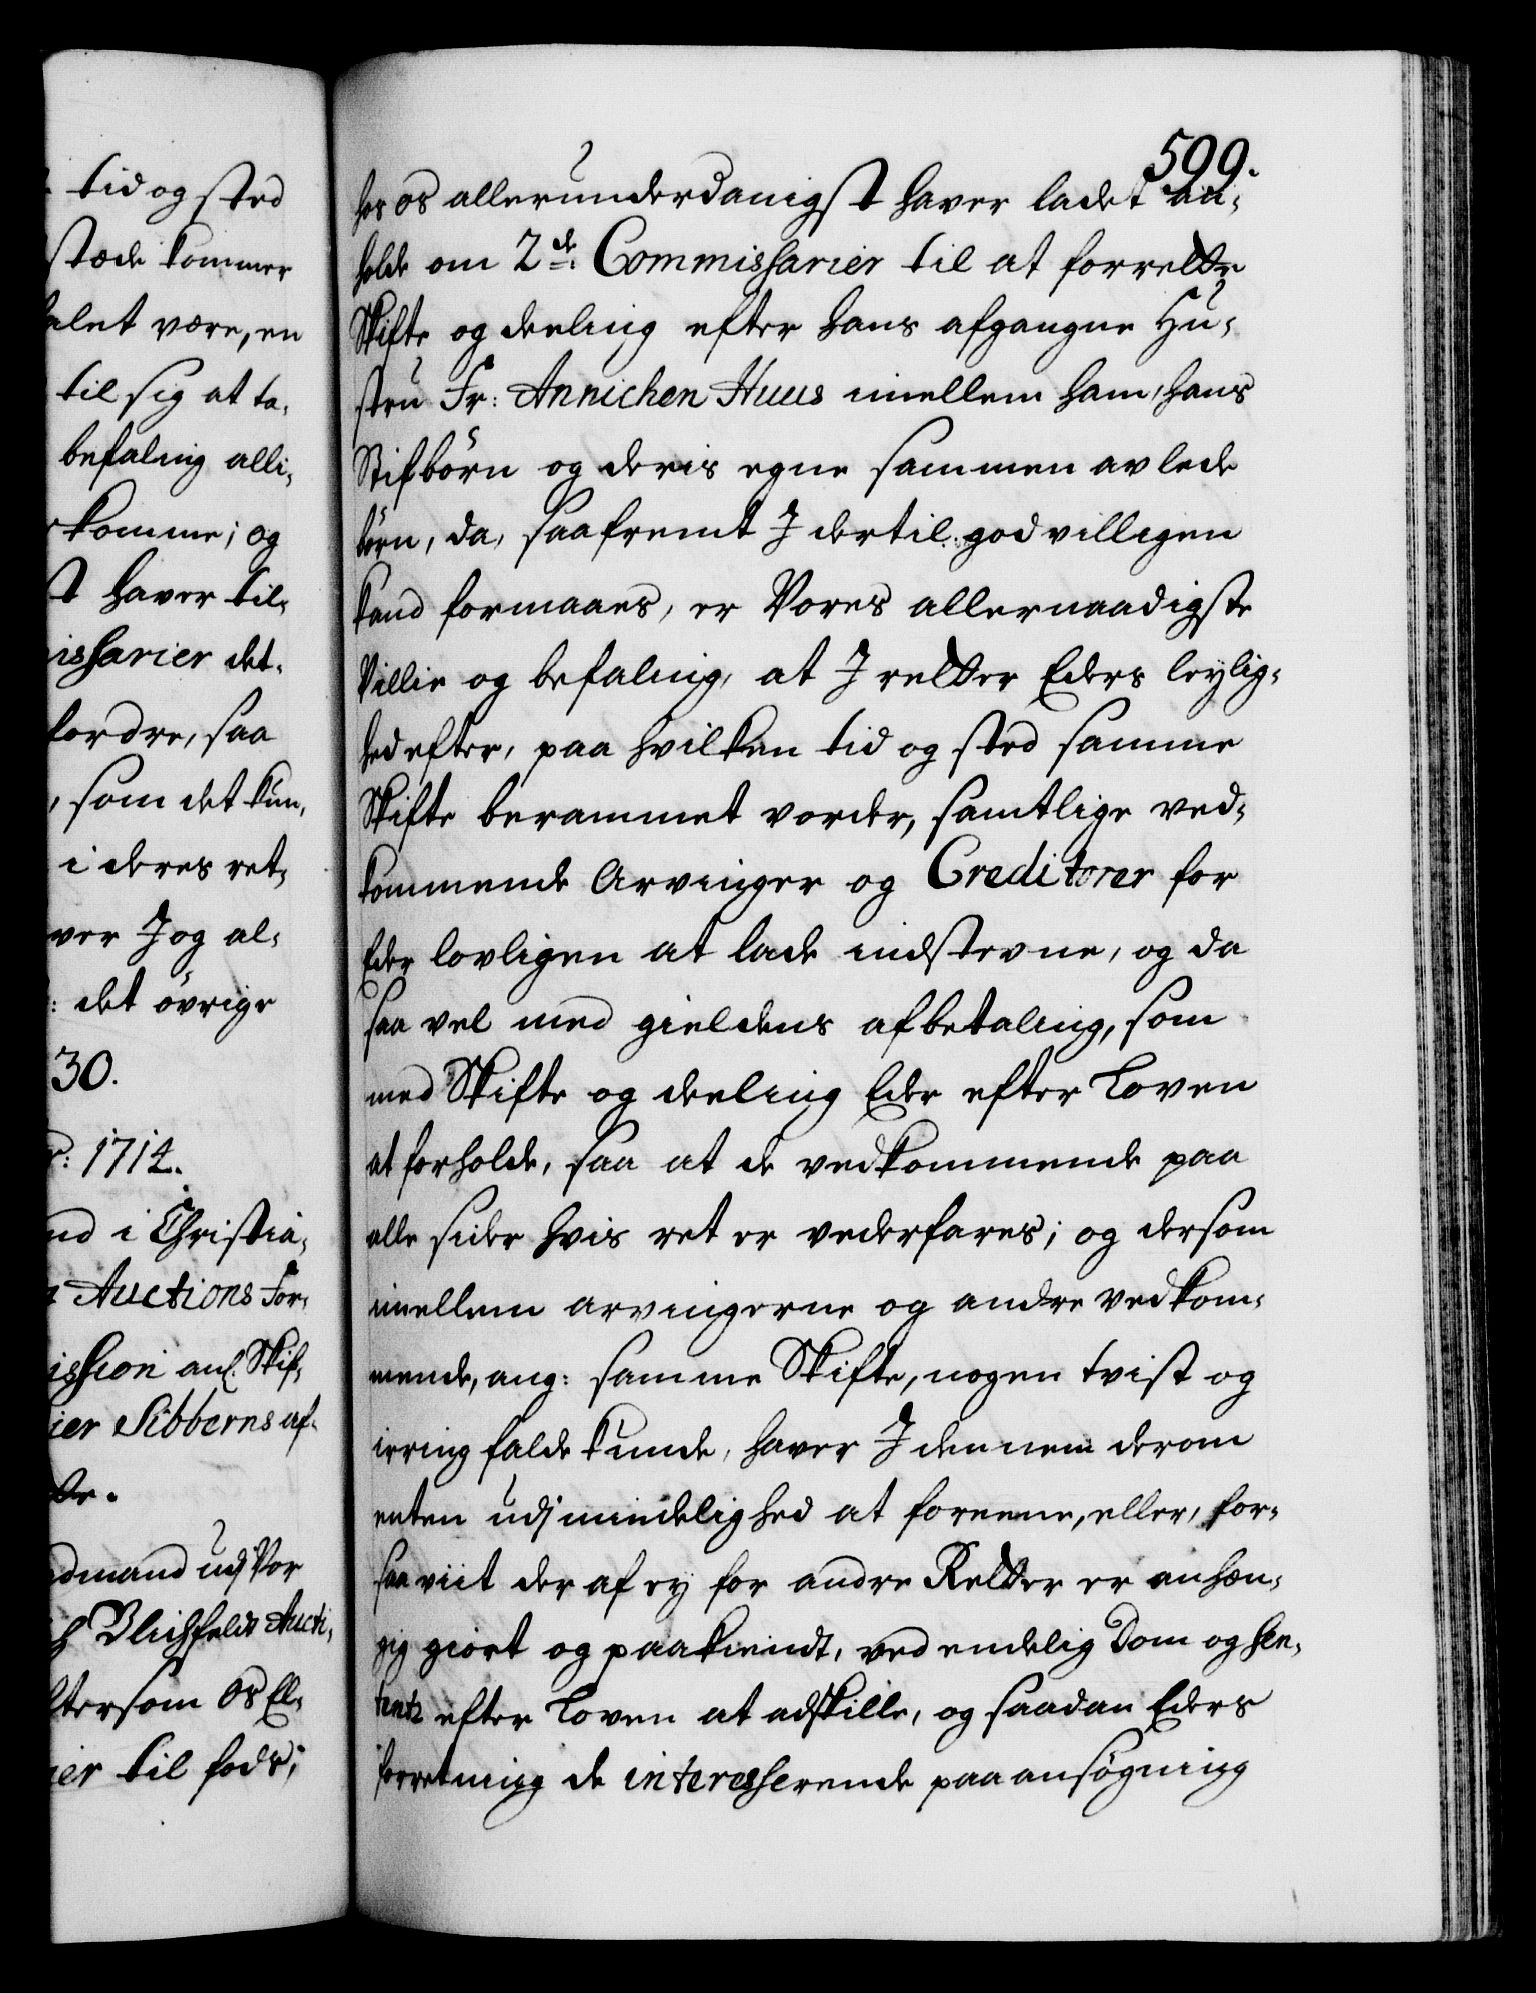 tid og sted
stæde kommer
alet være, en
til sig at ta-
befaling alli-
komme; og
st haver til-
issarier det-
fordre, saa
, som det kun-
i deres ret-
ver I og al-
: det övrige
30.
r: 1714.
nd i Christia-
Auctions For-
ission anl. Skif-
ier Sibberns af-
dmand udj Vor
Blichfeldt Aucti-
ftersom Os El-
ier til fods;
599.
hos os allerunderdanigst haver ladet an-
holde om 2de Commissarier til at forrette
Skifte og deeling efter hans afgangne Hu-
stru Fr: Annichen Huus imellem ham, hans
Stifbörn og deris egne sammen avlede
börn, da, saafremt I dertil godvilligen
kand formaaes, er Vores allernaadigste
Villie og befaling, at I retter Eders leylig-
hed efter, paa hvilken tid og sted samme
Skifte berammet vorder, samtlige ved-
kommende Arvinger og Creditorer for
Eder lovligen at lade indstevne, og da
saa vel med gieldens afbetaling, som
med Skifte og deeling Eder efter Loven
at forholde, saa at de vedkommende paa
alle sider hvis ret er vederfares; og dersom
imellem arvingerne og andre vedkom-
mende, ang: samme Skifte, nogen tvist og
irring falde kunde, haver I dennem derom
enten udj mindelighed at foreene, eller, for-
saaviit der af ey for andre Retter er anhæn-
gig giort og paakiendt, ved endelig Dom og sen-
tentz efter Loven at adskille, og saadan Eders
forretning de interesserende paa ansögning